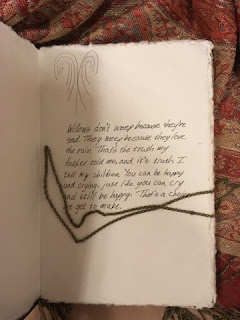 Willows don't weep because they're
sad. They weep because they love
the rain. That's the truth my
father told me, and it's truth I
tell my children. You can be happy
and crying, just like you can cry
and still be happy. That's a choice
we get to make.